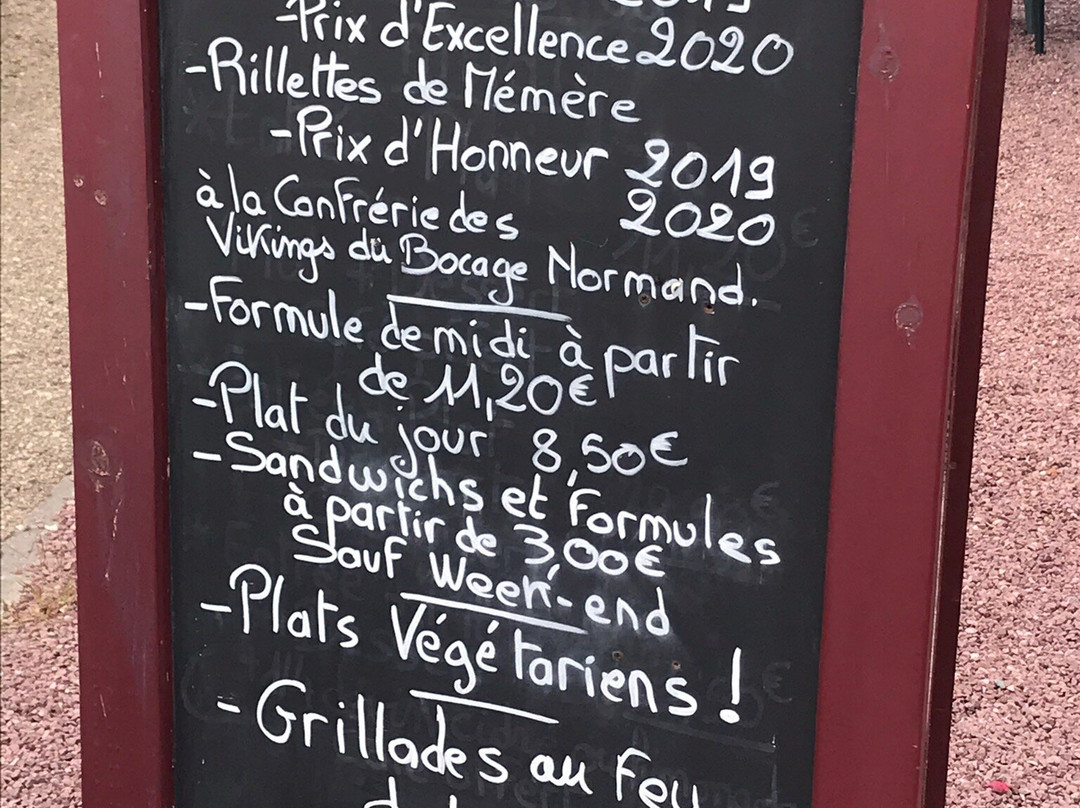 -Prix d'Excellence 2020
-Rillettes de Mémère
-Prix d'Honneur 2019
à la Confrérie des 2020
Vikings du Bocage Normand.
-Formule de midi à partir
de 11,20€
-Plat du jour 8,50€
-Sandwichs et Formules
à partir de 3,00€
Sauf Week-end
-Plats Végétariens !
-Grillades au feu